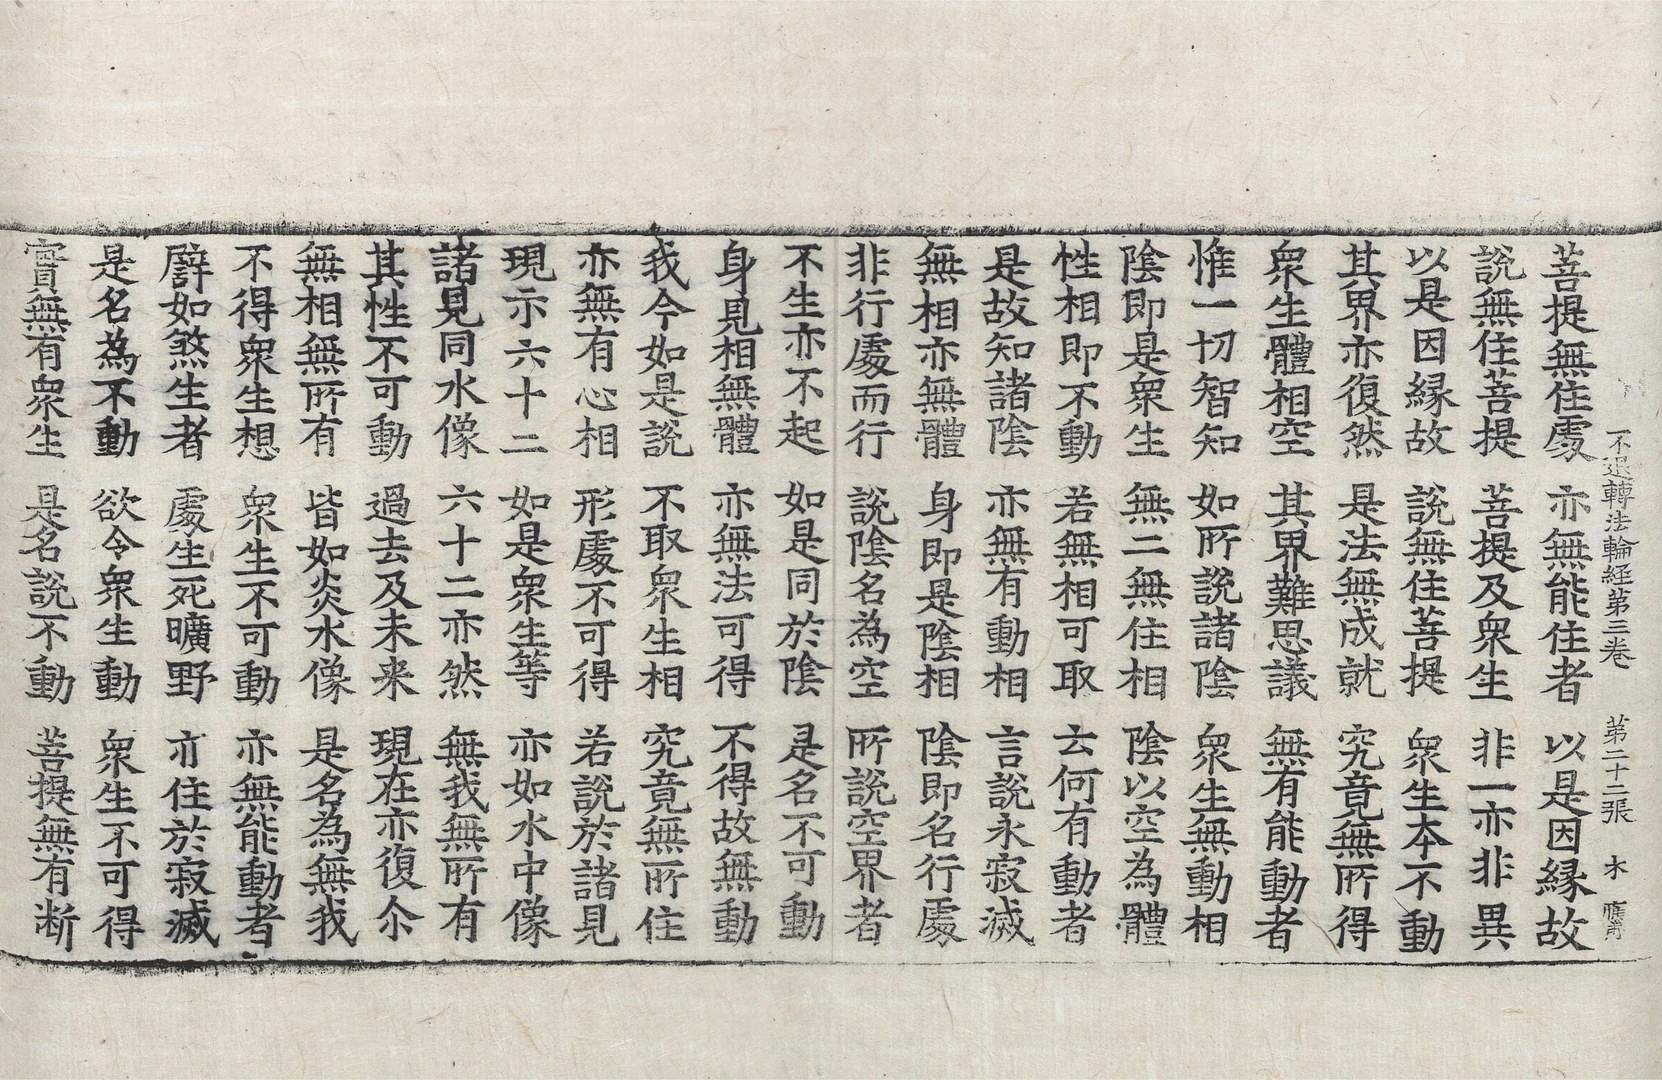 不退轉法輪経第三卷 第二十二張 木
菩提無住處 亦無能住者 以是因縁故
說無住菩提 菩提及衆生 非一亦非異
以是因縁故 說無住菩提 衆生本不動
其界亦復然 是法無成就 究竟無所得
衆生體相空 其界難思議 無有能動者
惟一切智知 如所說諸陰 衆生無動相
陰即是衆生 無二無住相 陰以空為體
性相即不動 若無相可取 云何有動者
是故知諸陰 亦無有動相 言說永寂滅
無相亦無體 身即是陰相 陰即名行處
非行處而行 說陰名為空 所說空界者
不生亦不起 如是同於陰 是名不可動
身見相無體 亦無法可得 不得故無動
我今如是說 不取衆生相 究竟無所住
亦無有心相 形處不可得 若說於諸見
現示六十二 如是衆生等 亦如水中像
諸見同水像 六十二亦然 無我無所有
其性不可動 過去及未来 現在亦復尒
無相無所有 皆如炎水像 是名為無我
不得衆生想 衆生不可動 亦無能動者
譬如煞生者 處生死曠野 亦住於寂滅
是名為不動 欲令衆生動 衆生不可得
實無有衆生 是名說不動 菩提無有断